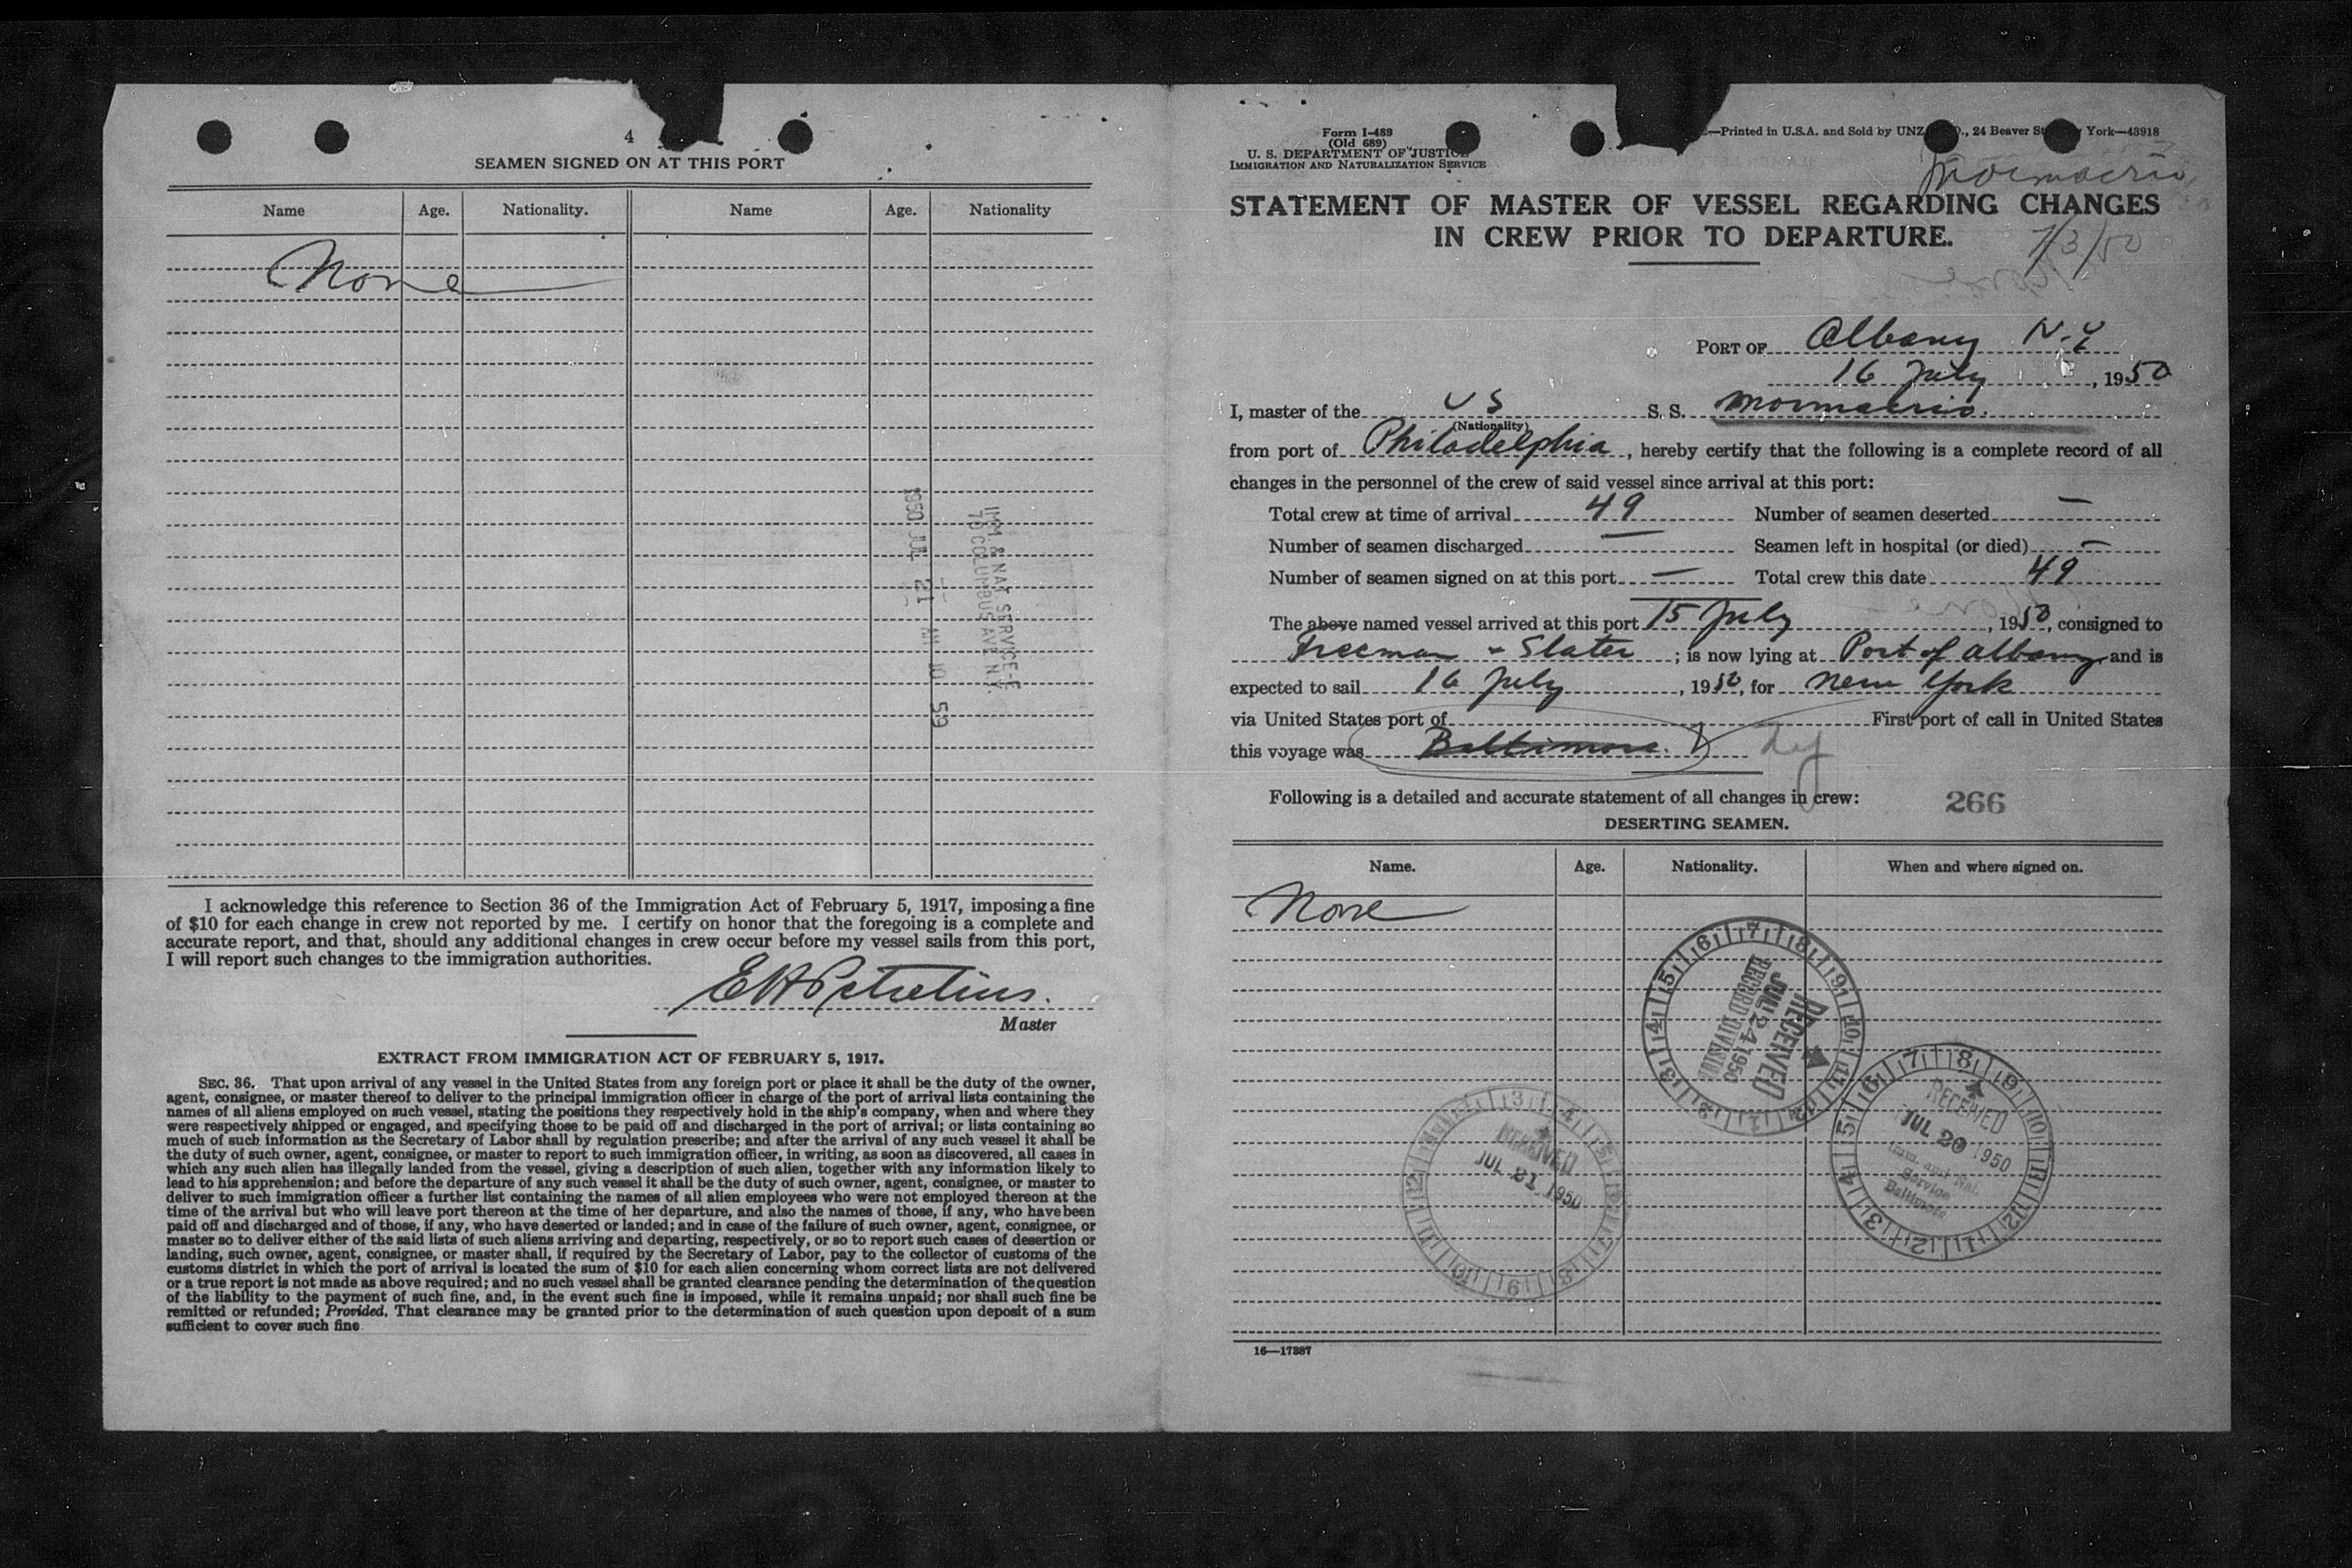 4
SEAMEN SIGNED ON AT THIS PORT
Name Age. Nationality. Name Age. Nationality
None
1950 JUL 21 AM 10 59
IMM. & NAT. SERVICE-E
70 COLUMBUS AVE N.Y.
I acknowledge this reference to Section 36 of the Immigration Act of February 5, 1917, imposing a fine
of $10 for each change in crew not reported by me. I certify on honor that the foregoing is a complete and
accurate report, and that, should any additional changes in crew occur before my vessel sails from this port,
I will report such changes to the immigration authorities.
Master
EXTRACT FROM IMMIGRATION ACT OF FEBRUARY 5, 1917.
SEC. 36. That upon arrival of any vessel in the United States from any foreign port or place it shall be the duty of the owner,
agent, consignee, or master thereof to deliver to the principal immigration officer in charge of the port of arrival lists containing the
names of all aliens employed on such vessel, stating the positions they respectively hold in the ship's company, when and where they
were respectively shipped or engaged, and specifying those to be paid off and discharged in the port of arrival; or lists containing so
much of such information as the Secretary of Labor shall by regulation prescribe; and after the arrival of any such vessel it shall be
the duty of such owner, agent, consignee, or master to report to such immigration officer, in writing, as soon as discovered, all cases in
which any such alien has illegally landed from the vessel, giving a description of such alien, together with any information likely to
lead to his apprehension; and before the departure of any such vessel it shall be the duty of such owner, agent, consignee, or master to
deliver to such immigration officer a further list containing the names of all alien employees who were not employed thereon at the
time of the arrival but who will leave port thereon at the time of her departure, and also the names of those, if any, who have been
paid off and discharged and of those, if any, who have deserted or landed; and in case of the failure of such owner, agent, consignee, or
master so to deliver either of the said lists of such aliens arriving and departing, respectively, or so to report such cases of desertion or
landing, such owner, agent, consignee, or master shall, if required by the Secretary of Labor, pay to the collector of customs of the
customs district in which the port of arrival is located the sum of $10 for each alien concerning whom correct lists are not delivered
or a true report is not made as above required; and no such vessel shall be granted clearance pending the determination of the question
of the liability to the payment of such fine, and, in the event such fine is imposed, while it remains unpaid; nor shall such fine be
remitted or refunded; Provided, That clearance may be granted prior to the determination of such question upon deposit of a sum
sufficient to cover such fine
Form I-489
(Old 689)
U. S. DEPARTMENT OF JUSTICE
IMMIGRATION AND NATURALIZATION SERVICE
—Printed in U.S.A. and Sold by UNZ , 24 Beaver St York—43918
Mormacrio
STATEMENT OF MASTER OF VESSEL REGARDING CHANGES
IN CREW PRIOR TO DEPARTURE.
7/3/50
PORT OF Albany N.Y
16 July, 1950
I, master of the US S. S. Mormacrio.
(Nationality)
from port of Philadelphia, hereby certify that the following is a complete record of all
changes in the personnel of the crew of said vessel since arrival at this port:
Total crew at time of arrival 49 Number of seamen deserted —
Number of seamen discharged — Seamen left in hospital (or died) —
Number of seamen signed on at this port — Total crew this date 49
The above named vessel arrived at this port 15 July, 1950, consigned to
Freeman - Slater; is now lying at Port of Albany and is
expected to sail 16 July, 1950, for New York
via United States port of First port of call in United States
this voyage was Baltimore.
Following is a detailed and accurate statement of all changes in crew:
266
DESERTING SEAMEN.
Name. Age. Nationality. When and where signed on.
None
RECEIVED
JUL 24 1950
RECORD DIVISION
RECEIVED
JUL 20 1950
Imm. and Nat.
Service
Baltimore
RECEIVED
JUL 21 1950
16—17387